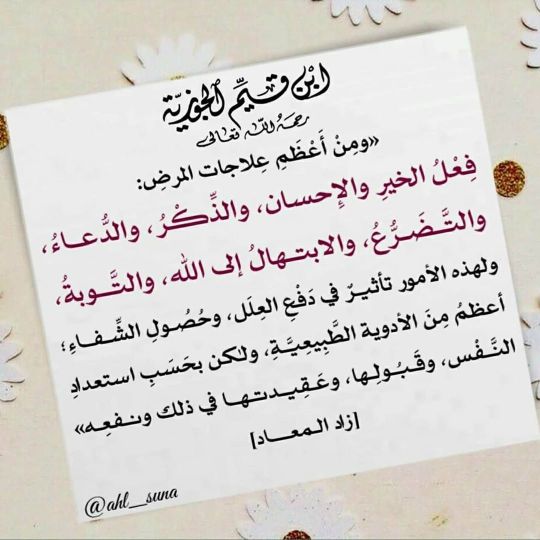 ابْن قَيِّم الجَوزِيَّة
رحمَهُ اللَّه تعالى
«ومِنْ أَعْظَمِ عِلاجات المرضِ:
فِعْلُ الخيرِ والإحسان، والذِّكْرُ، والدُّعاءُ،
والتَّضَرُّعُ، والابتهالُ إلى الله، والتَّوبةُ،
ولهذه الأمور تأثيرٌ في دَفْعِ العِلَل، وحُصُولِ الشِّفاءِ؛
أعظمُ مِنَ الأدوية الطَّبِيعِيَّةِ، ولكن بحَسَبِ استعدادِ
النَّفْس، وقَبُولِها، وعَقِيدتها في ذلك ونفعِه»
[زاد المعاد]
@ahl__suna